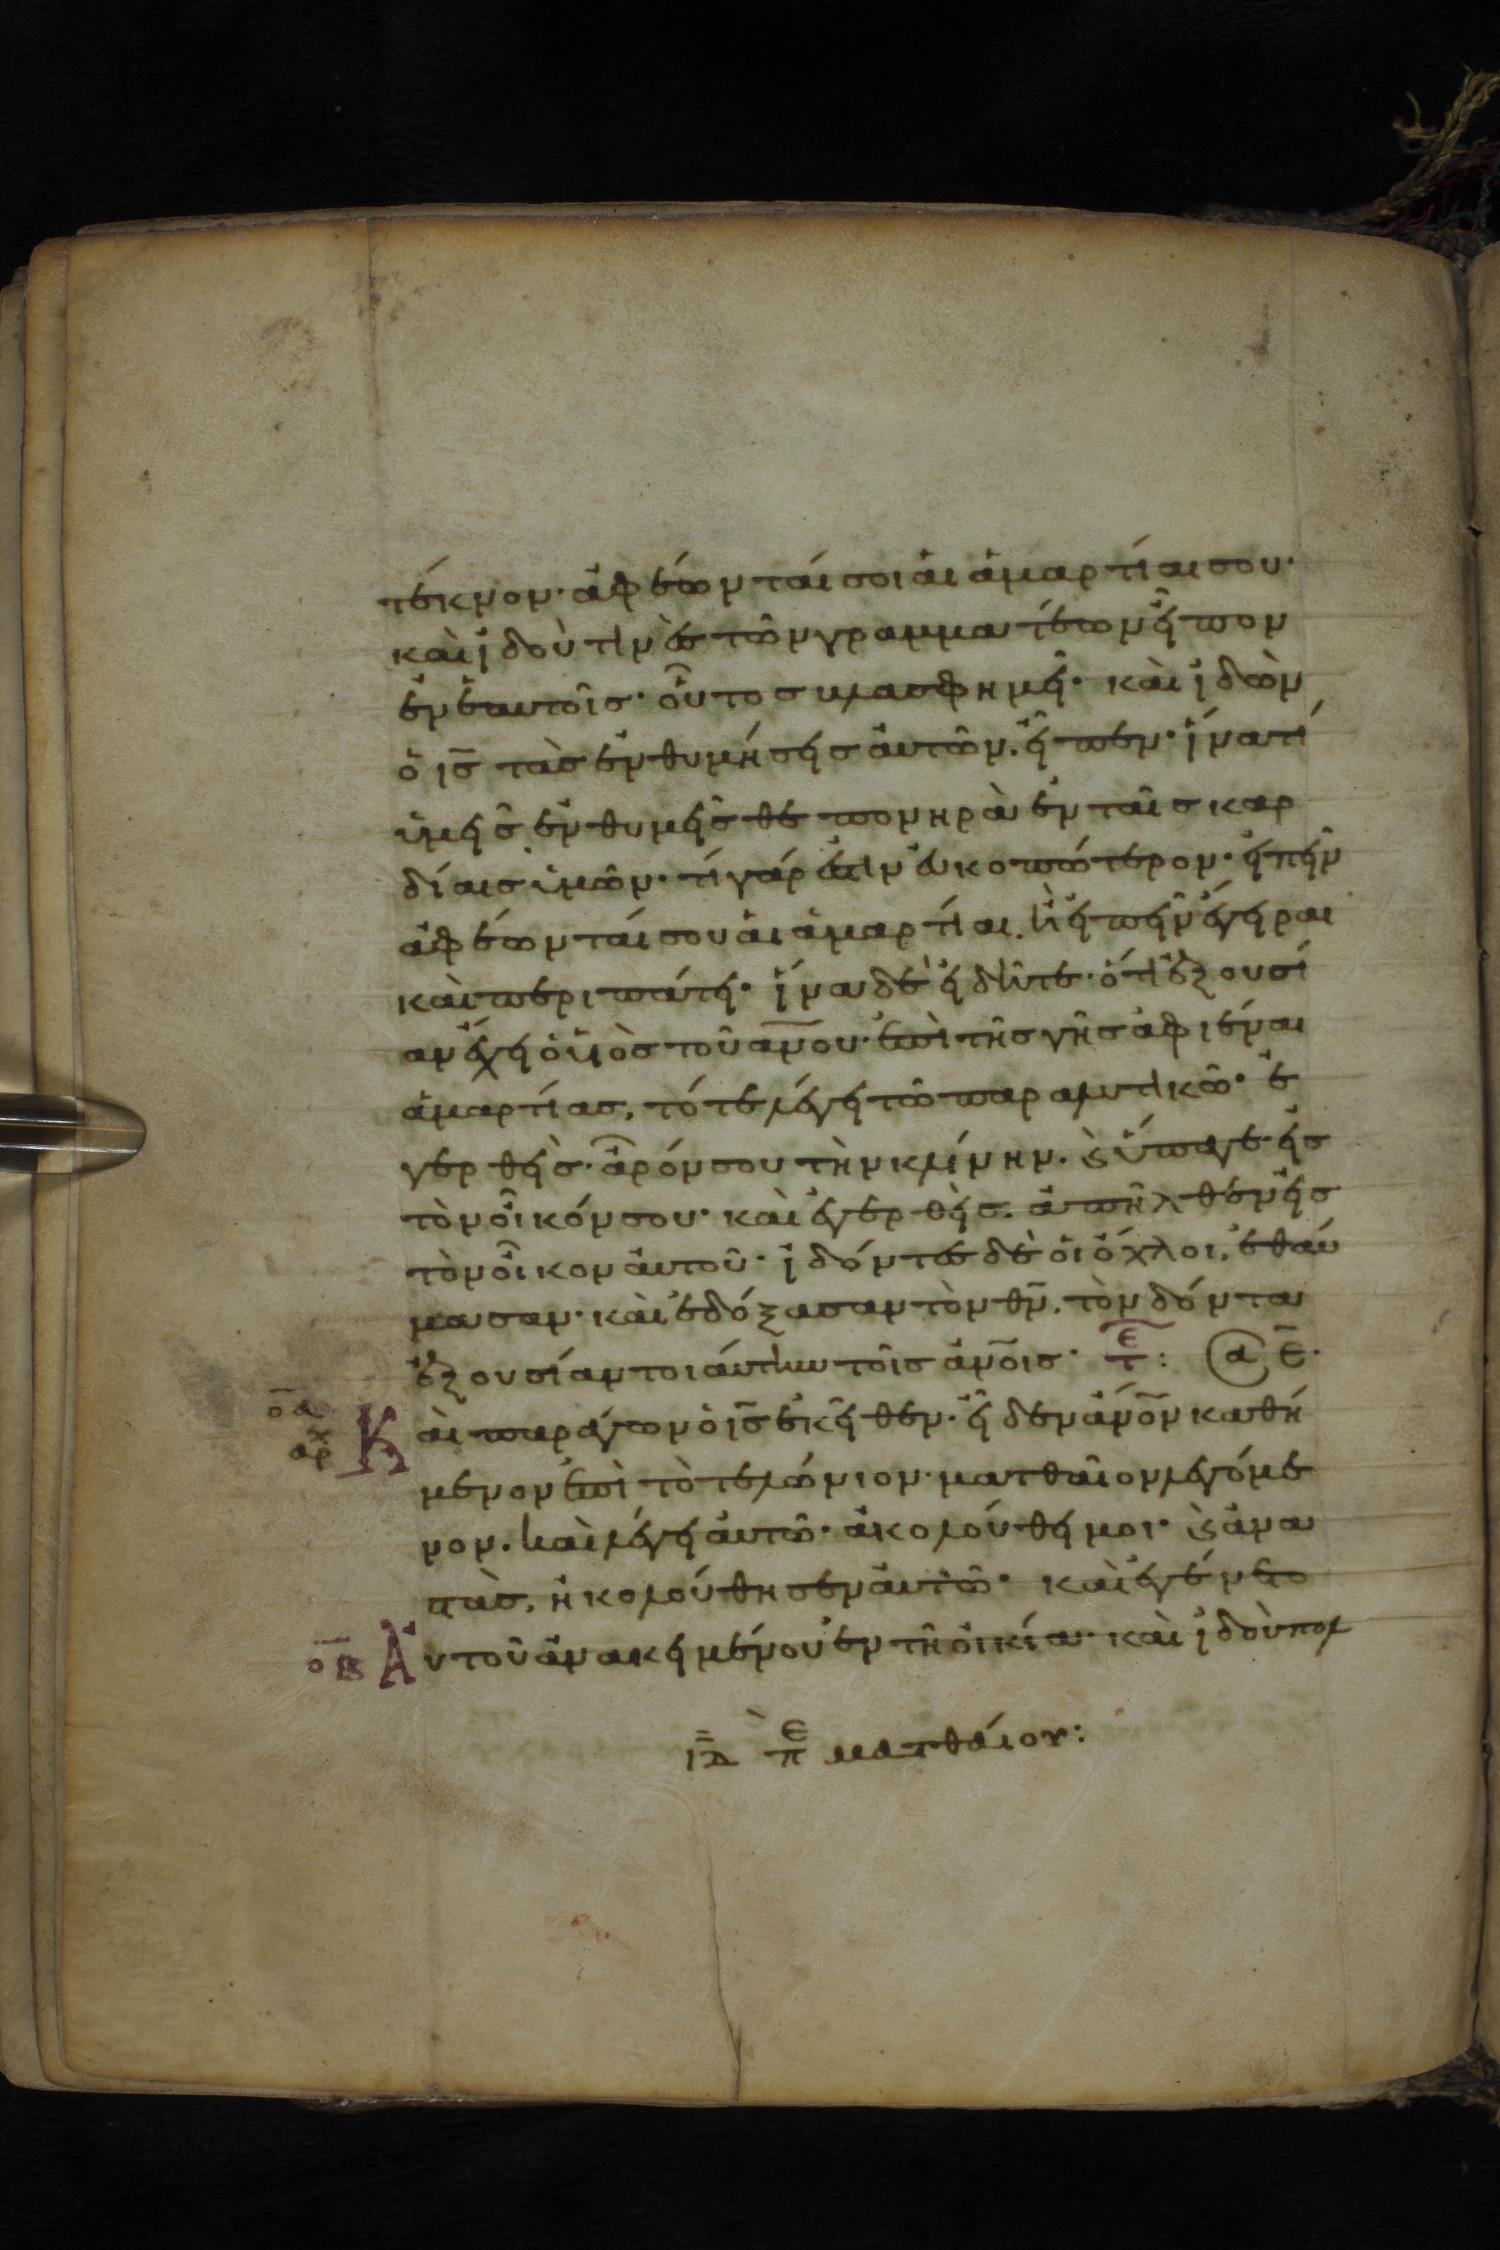 τέκνον· ἀφέωνταί σοι αἱ ἁμαρτίαι σου·
καὶ ἰδού τινὲς τῶν γραμματέων εἶπον
ἐν ἑαυτοῖς· οὗτος βλασφημεῖ· καὶ ἰδὼν
ὁ ι̅ς̅ τὰς ἐνθυμήσεις αὐτῶν. εἶπεν· ἵνατί
ὑμεῖς ἐνθυμεῖσθε πονηρὰ ἐν ταῖς καρ
δίαις ὑμῶν· τί γάρ ἐστιν εὐκοπώτερον· εἰπεῖν
ἀφέωνταί σου αἱ ἁμαρτίαι. ἢ εἰπεῖν ἔγειραι
καὶ περιπάτει· ἵνα δὲ εἰδῆτε· ὅτι ἐξουσί
αν ἔχει ὁ υἱὸς τοῦ α̅ν̅ου· ἐπὶ τῆς γῆς ἀφιέναι
ἁμαρτίας, τότε λέγει τῶ παραλυτικῶ· ἐ
γερθείς· ἆρόν σου τὴν κλίνην. ϗ ὕπαγε εἰς
τὸν οἶκόν σου· καὶ ἐγερθεὶς. ἀπῆλθεν εἰς
τὸν οἶκον αὐτοῦ· ἰδόντες δὲ οἱ ὄχλοι, ἐθαύ
μασαν· καὶ ἐδόξασαν τὸν θ̅ν̅. τὸν δόντα
ἐξουσίαν τοιαύτην τοῖς ἀν̅οις· τε: α ε̅·
ο̅α̅ αρχ Καὶ παράγων ὁ ι̅ς̅ ἐκεῖθεν· εἶδεν ἄν̅ον καθή
μενον ἐπὶ τὸ τελώνιον· ματθαῖον λεγόμε
νον. καὶ λέγει αὐτῶ· ἀκολούθει μοι· ϗ ἀνα
στὰς, ἠκολούθησεν αὐτῶ· καὶ ἐγένετο
ο̅β̅ Αὐτοῦ ἀνακειμένου ἐν τῆ οἰκία· καὶ ἰδοὺ πολ
ι̅δ̅ ἐπ ματθαίου: